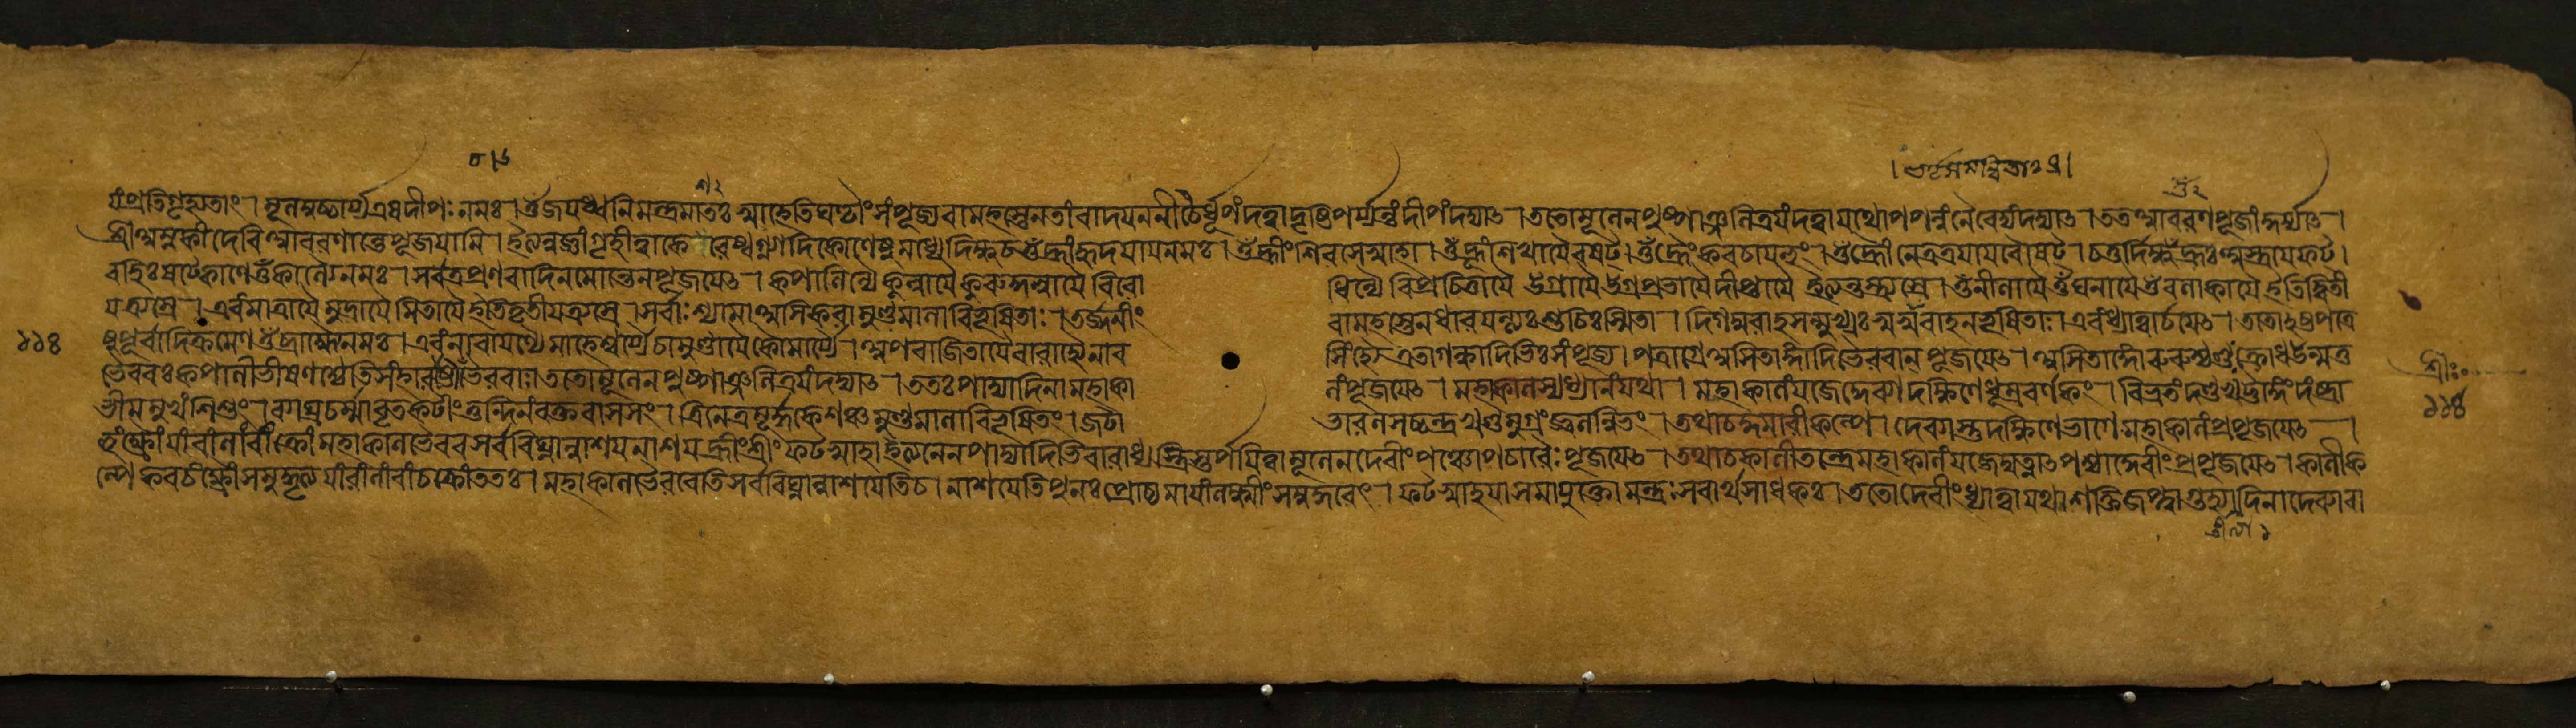 য়ং প্রতিগৃহ্যতাং। মূলমুচ্চার্য্য এষ দীপঃ নমঃ। ওঁ জয়ধ্বনিমন্ত্রমাতঃ স্বাহেতি ঘণ্টাং সংপূজ্য বামহস্তেন তাং বাদয়ন নীচৈর্ধূপং দত্ত্বা দৃষ্টিপর্য্যন্তং দীপং দদ্যাৎ। ততো মূলেন পুষ্পাঞ্জলিত্রয়ং দত্ত্বা যথোপপন্নং নৈবেদ্যং দদ্যাৎ। তত আবরণপূজাং কুর্য্যাৎ।
শ্রীঅমুকীদেবি আবরণান্তে পূজয়ামি। ইত্যনুজ্ঞাং গৃহীত্বা কেশরেষ্বগ্ন্যাদিকোণেষু মধ্যে দিক্ষু চ ওঁ হ্রাং হৃদয়ায় নমঃ। ওঁ হ্রীং শিরসে স্বাহা। ওঁ হ্রূং শিখায়ৈ বষট্। ওঁ হ্রৈং কবচায় হুং। ওঁ হ্রৌং নেত্রত্রয়ায় বৌষট্। চতুর্দিক্ষু ওঁ হ্রঃ অস্ত্রায় ফট্।
বহিঃষট্কোণে ওঁ কাল্যৈ নমঃ। সর্বত্র প্রণবাদিনমোন্তেন পূজয়েৎ। কপালিন্যৈ কুল্লায়ৈ কুরুকুল্লায়ৈ বিরোধিন্যৈ বিপ্রচিত্তায়ৈ উগ্রায়ৈ উগ্রপ্রভায়ৈ দীপ্তায়ৈ ইত্যন্তস্ত্র্যস্রে। ওঁ নীলায়ৈ ওঁ ঘনায়ৈ ওঁ বলাকায়ৈ ইতি দ্বিতী
য়ত্র্যস্রে। এবং মাত্রায়ৈ মুদ্রায়ৈ মিতায়ৈ ইতি তৃতীয়ত্র্যস্রে। সর্বাঃ শ্যামা অসিকরা মুণ্ডমালাবিভূষিতাঃ। তর্জ্জনীং বামহস্তেন ধারয়ন্ত্যঃ শুচিস্মিতা। দিগম্বরা হসন্মুখ্যঃ স্বস্ববাহনভূষিতাঃ। এবং ধ্যাত্বার্চয়েৎ। ততোঽষ্টপত্রে
১১৪ ষু পূর্বাদিক্রমেণ ওঁ ব্রাহ্ম্যৈ নমঃ। এবং নারায়ণ্যৈ মাহেশ্বর্য্যৈ চামুণ্ডায়ৈ কৌমার্য্যৈ। অপরাজিতায়ৈ বারাহ্যৈ নারসিংহ্যৈ এতা গন্ধাদিভিঃ সংপূজ্য। পত্রাগ্রে অসিতাঙ্গাদিভৈরবান্ পূজয়েৎ। অসিতাঙ্গো রুরুশ্চণ্ডঃ ক্রোধ উন্মত্ত
ভৈরবঃ কপালী ভীষণশ্চেতি সংহারশ্চাষ্টৌ ভৈরবাঃ। ততো মূলেন পুষ্পাঞ্জলিত্রয়ং দদ্যাৎ। ততঃ পাদ্যাদিনা মহাকালং পূজয়েৎ। মহাকালস্য ধ্যানং যথা। মহাকালং যজেদ্দেব্যা দক্ষিণে ধূম্রবর্ণকং। বিভ্রতং দণ্ডখট্বাঙ্গৌ দংষ্ট্রা শ্রীঃ
ভীমমুখং শিশুং। ব্যাঘ্রচর্ম্মাবৃতকটীং তুন্দিলং রক্তবাসসং। ত্রিনেত্রমূর্দ্ধকেশঞ্চ মুণ্ডমালাবিভূষিতং। জটাভারলসচ্চন্দ্রখণ্ডমুগ্রং জ্বলন্নিভং। তথাচ কুমারীকল্পে। দেব্যাস্তু দক্ষিণে ভাগে মহাকালং প্রপূজয়েৎ। ১১৪
হূং ক্ষ্রৌং যাং রাং লাং বাং ক্রোং মহাকালভৈরব সর্ববিঘ্নান্নাশয় নাশয় হ্রীং শ্রীং ফট স্বাহা ইত্যনেন পাদ্যাদিভিরারাধ্য ত্রিস্তর্পয়িত্বা মূলেন দেবীং পঞ্চোপচারৈঃ পূজয়েৎ। তথাচ কালীতন্ত্রে মহাকালং যজেদ্যত্নাৎ পশ্চাদ্দেবীং প্রপূজয়েৎ। কালীক
ল্পে কবচং ক্ষ্রৌং সমুদ্ধৃত্য যাং রাং লাং বাং চ ক্রোং ততঃ। মহাকালভৈরবেতি সর্ববিঘ্নান্নাশয়েতি চ। নাশয়েতি পুনঃ প্রোচ্য মায়াং লক্ষ্মীং সমুদ্ধরেৎ। ফট স্বাহয়া সমাযুক্তো মন্ত্রঃ সর্বার্থসাধকঃ। ততো দেবীং ধ্যাত্বা যথাশক্তি জপ্ত্বা গুহ্যাদিনা দেব্যা বা